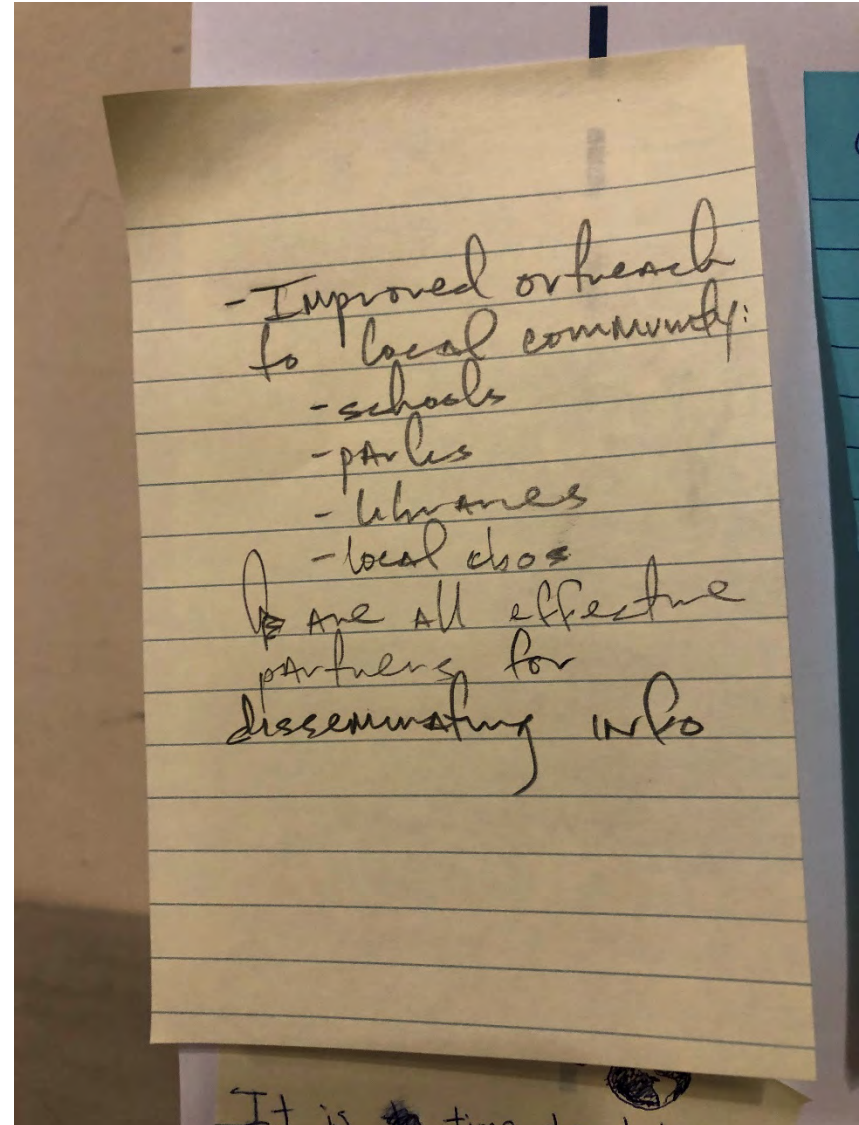 - Improved outreach
to local community:
- schools
- parks
- libraries
- local cbos
↳ are all effective
partners for
disseminating info
It is time